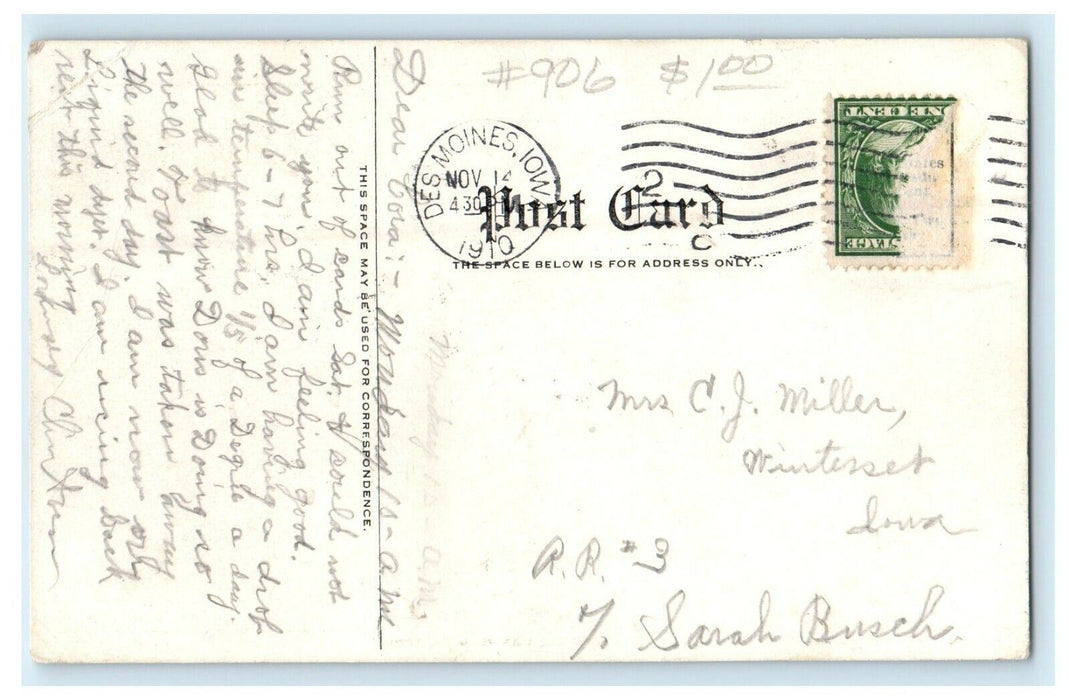 #906 $1.00
DES MOINES, IOWA
NOV 14
4 30 P
1910
2
C
ONE CENT
Post Card
THE SPACE BELOW IS FOR ADDRESS ONLY.
THIS SPACE MAY BE USED FOR CORRESPONDENCE.
Mrs C. J. Miller,
Winterset
Iowa
R. R. #3
%. Sarah Busch.
Dear Cora:- Monday 15- a.m.
Run out of cards Sat. & could not
write you. I am feeling good.
Sleep 6-7 hrs. I am having a drop
in temperature 1/5 of a Degre a day.
Glad to know Doris is Doing so
well. Toast was taken away
the second day. I am now on
Liquid dyet. I am
this morning